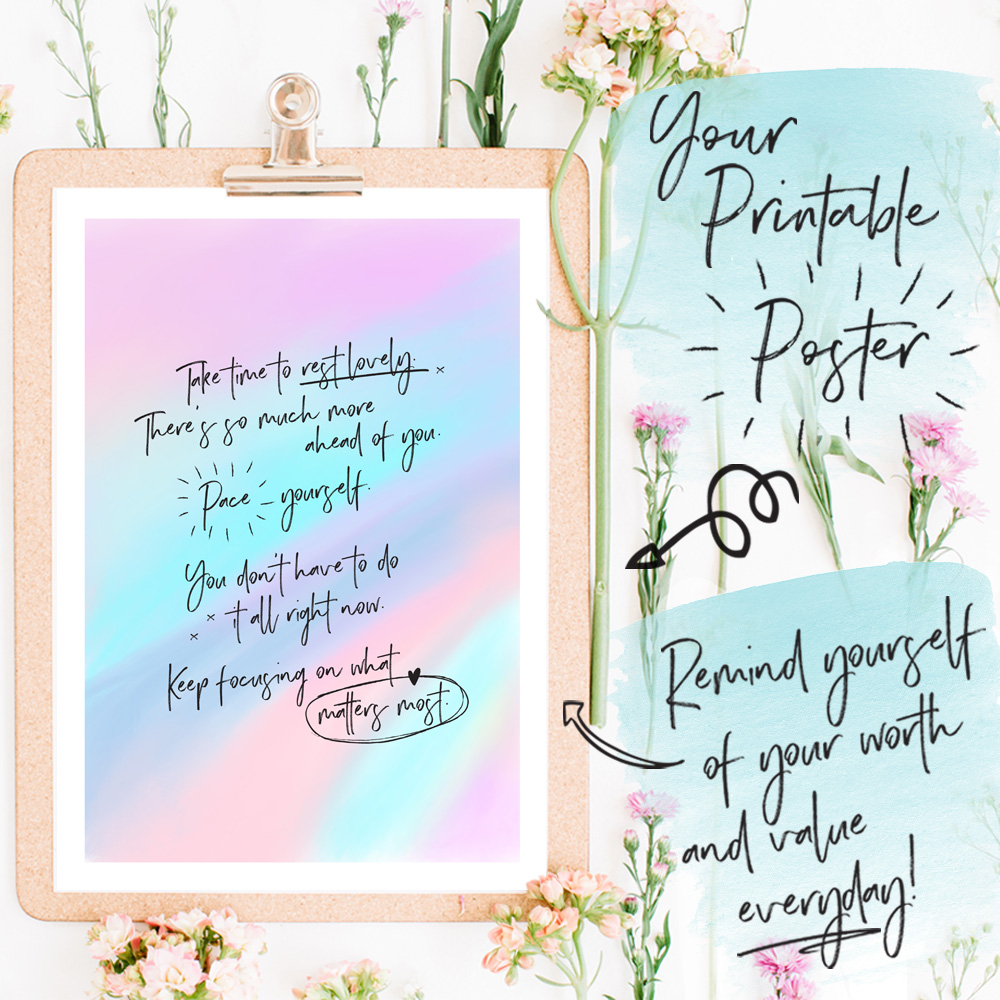 Take time to rest lovely.
There's so much more
ahead of you.
Pace yourself.
You don't have to do
it all right now.
Keep focusing on what
matters most.
Your
Printable
Poster
Remind yourself
of your worth
and value
everyday!